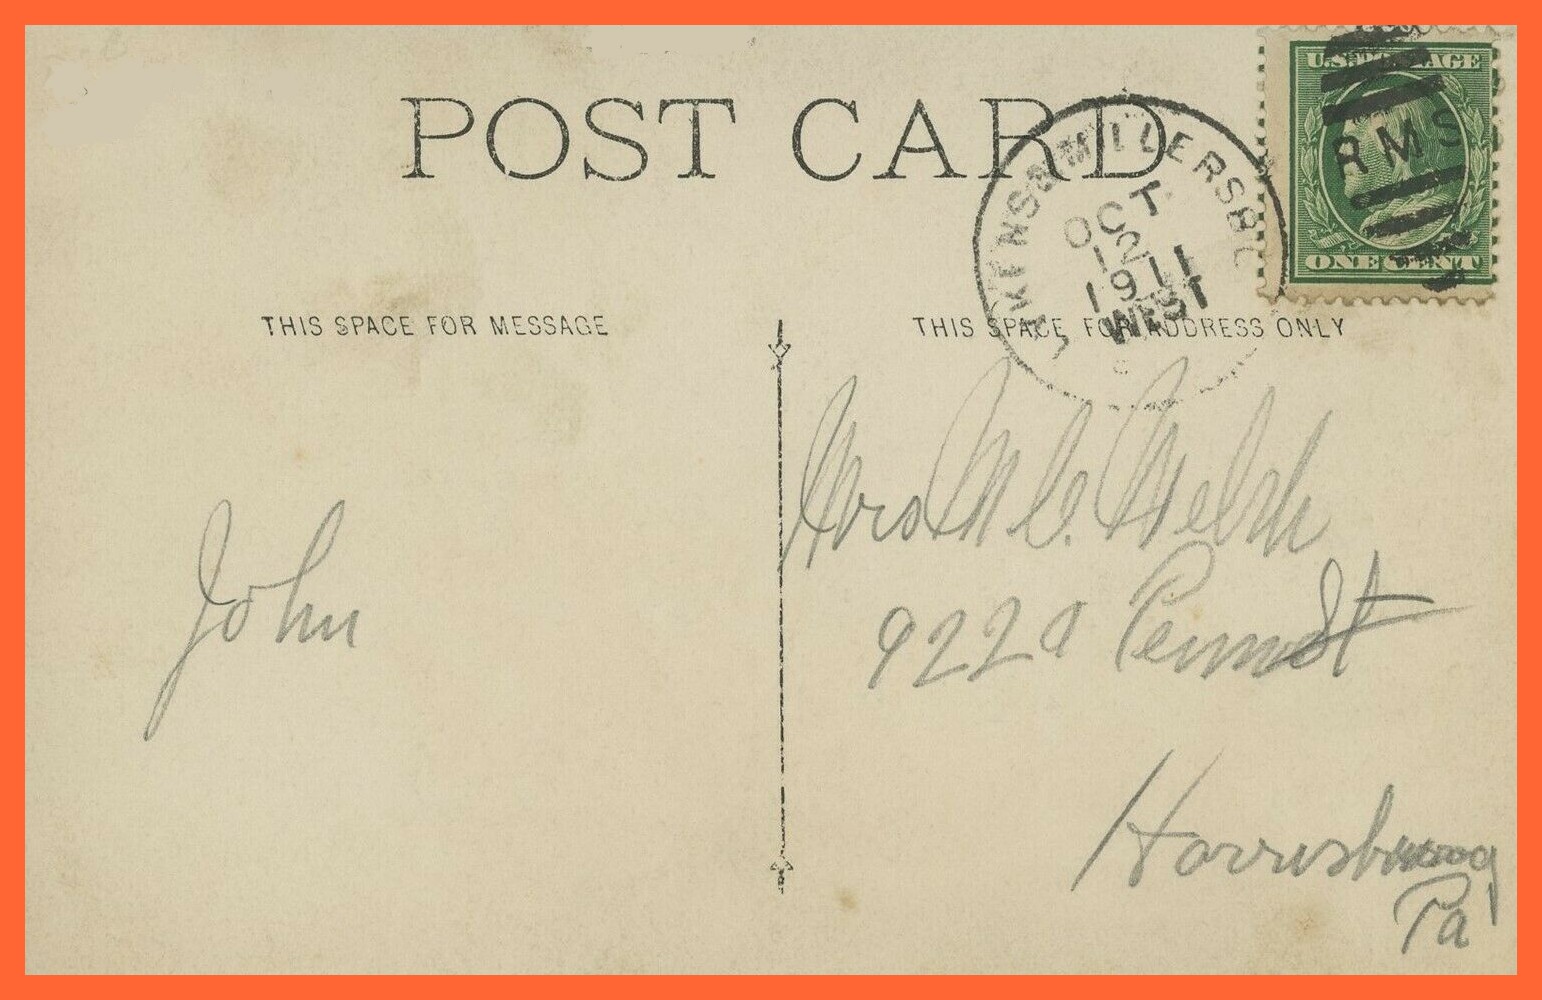 POST CARD
U.S. POSTAGE
RMS
ONE CENT
LYKENS & MILLERSBG
OCT
12
1911
WEST
THIS SPACE FOR MESSAGE
THIS SPACE FOR ADDRESS ONLY
John
Mrs M C. Welsh
922a Penn St
Harrisburg
Pa